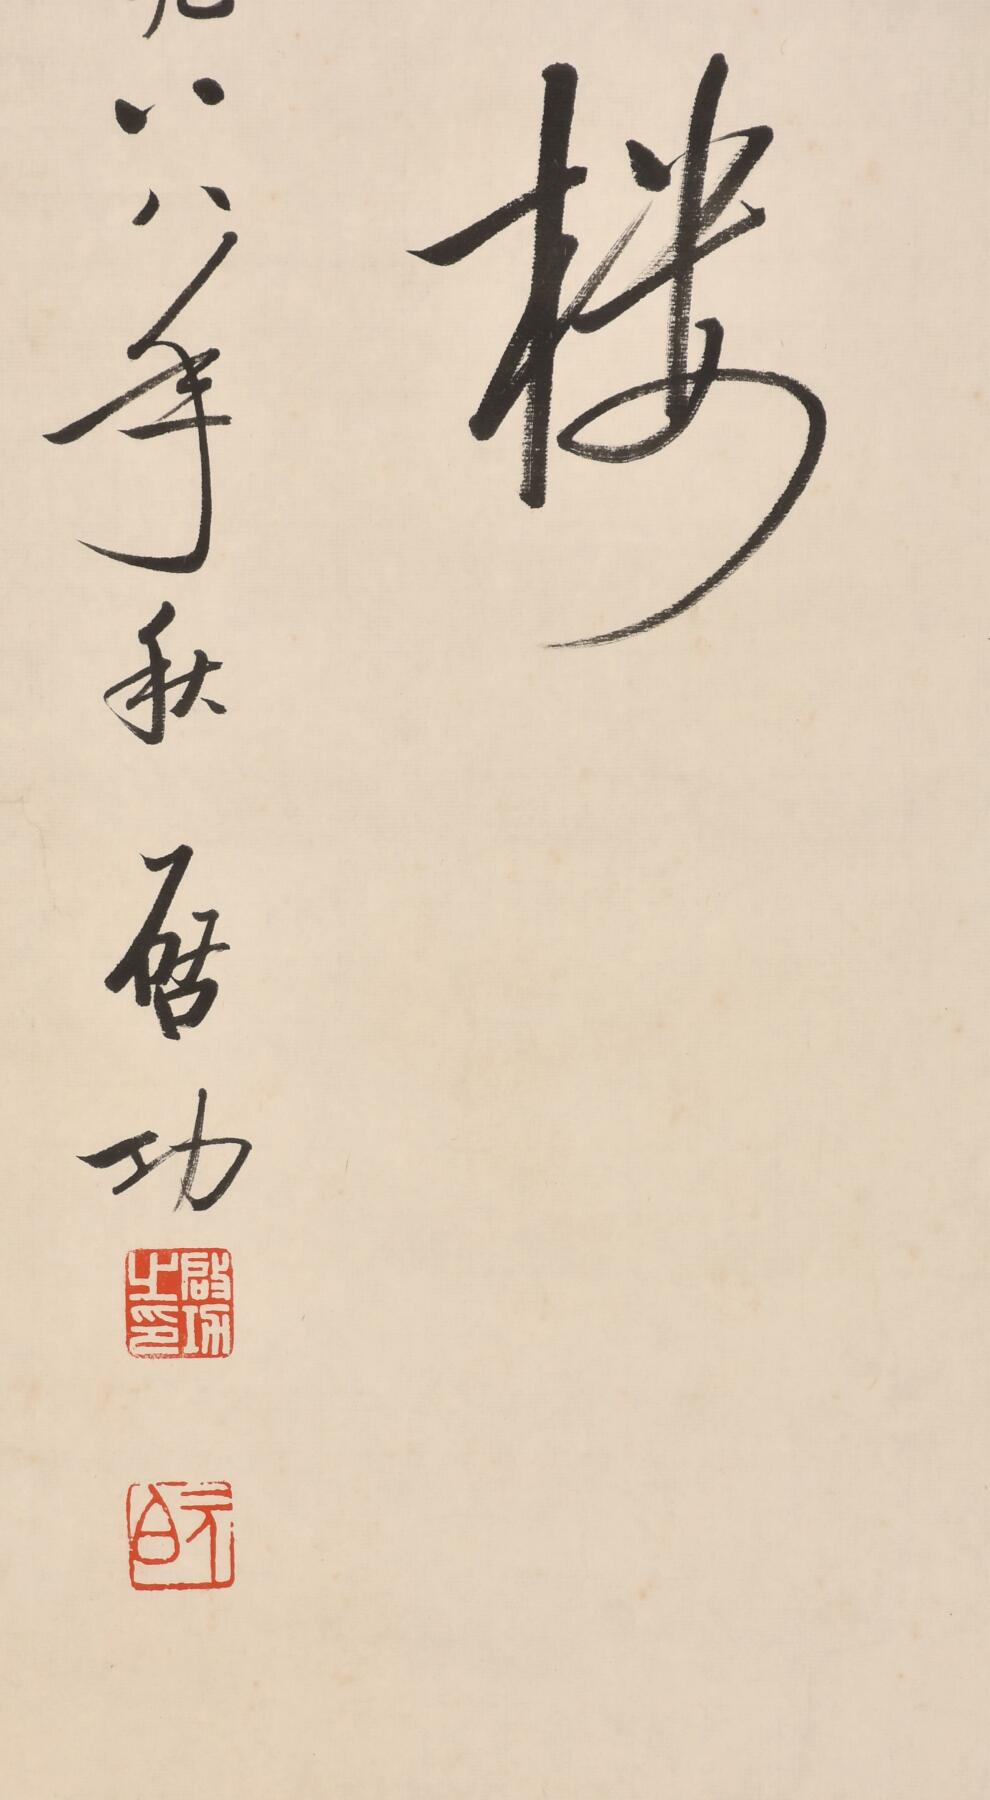 楼
九八八年秋 启功
启功之印
元白